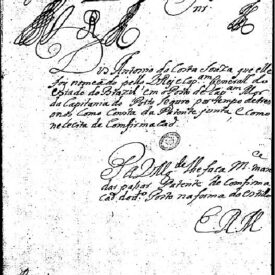 Diz Antonio da Costa Souza que elle
foy nomeado pello V. Rey e Capam General do
estado do Brazil em o Posto de Capam Mor
da Capitania do Porto Seguro por tempo de tres
annos como Consta da Patente junta e como
necessita de Confirmacaõ
P. a V. Mgde lhe faca Mce man
dar passar Patente de Confirma
caõ do do Posto na forma do estillo
E R M